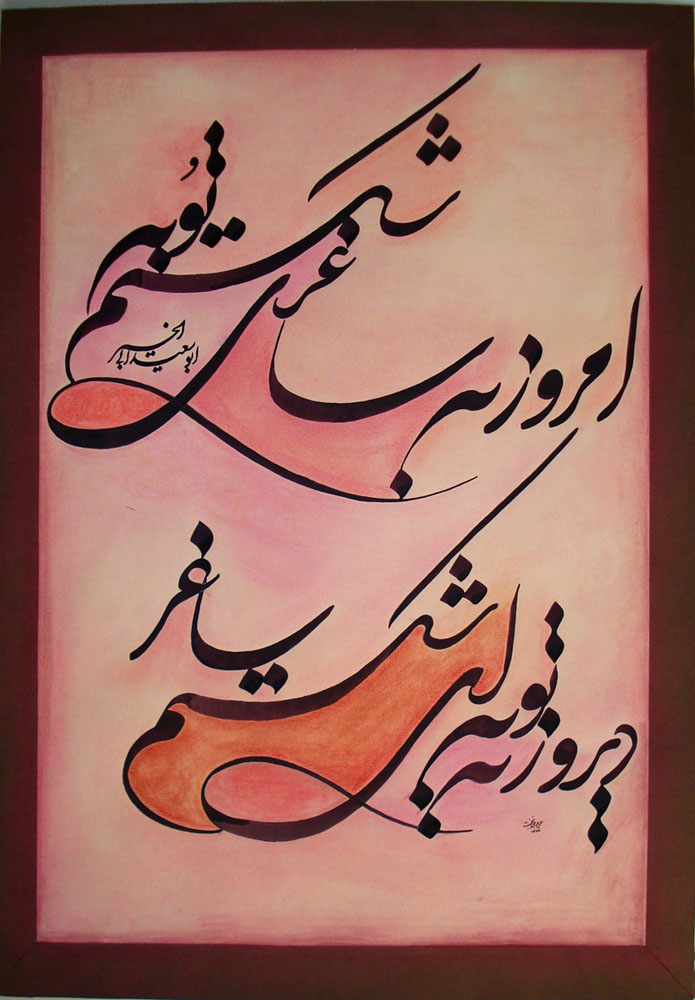 امروز به ساغری شکستم توبه
ابوسعید ابی الخیر
دیروز به توبه ای شکستم ساغر